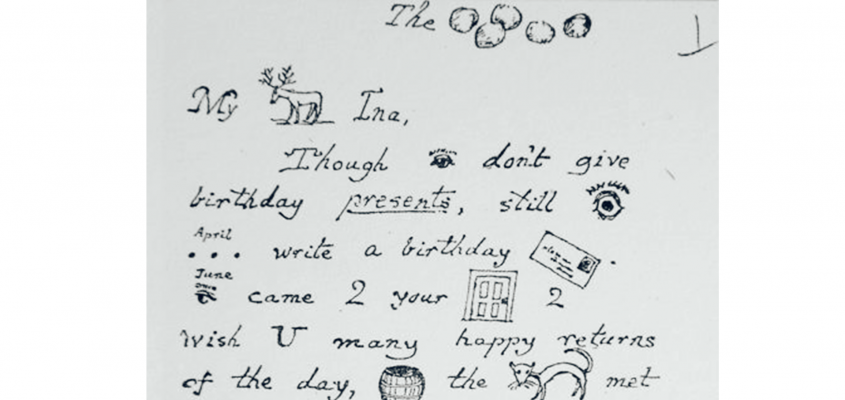 The
My Ina,
Though don't give
birthday presents, still
April
... write a birthday .
June
came 2 your 2
wish U many happy returns
of the day, the met